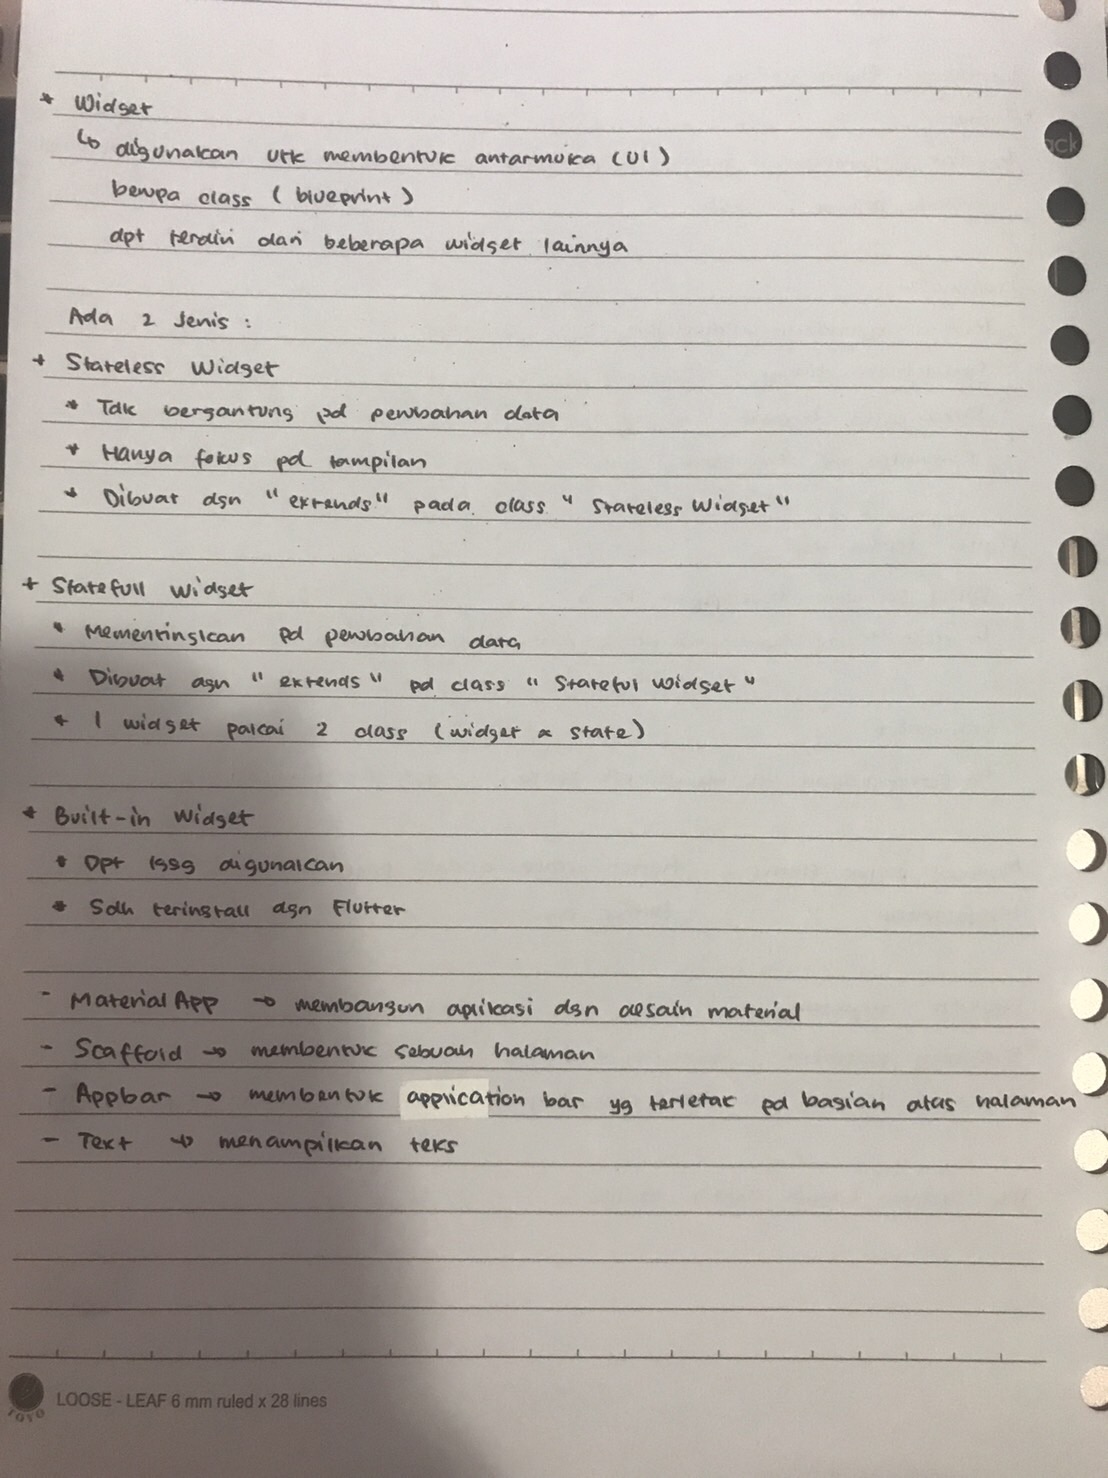 * Widget
↳ digunakan utk membentuk antarmuka (UI)
berupa class (blueprint)
dpt terdiri dari beberapa widget lainnya
Ada 2 Jenis :
+ Stateless Widget
* Tdk bergantung pd perubahan data
* Hanya fokus pd tampilan
* Dibuat dgn "extends" pada class "Stateless Widget"
+ Statefull Widget
* Mementingkan pd perubahan data
* Dibuat dgn "extends" pd class "Stateful Widget"
* 1 widget pakai 2 class (widget & state)
* Built-in Widget
* Dpt lgsg digunakan
* Sdh terinstall dgn Flutter
- Material App → membangun aplikasi dgn desain material
- Scaffold → membentuk sebuah halaman
- Appbar → membentuk application bar yg terletak pd bagian atas halaman
- Text → menampilkan teks
TOYO
LOOSE - LEAF 6 mm ruled x 28 lines